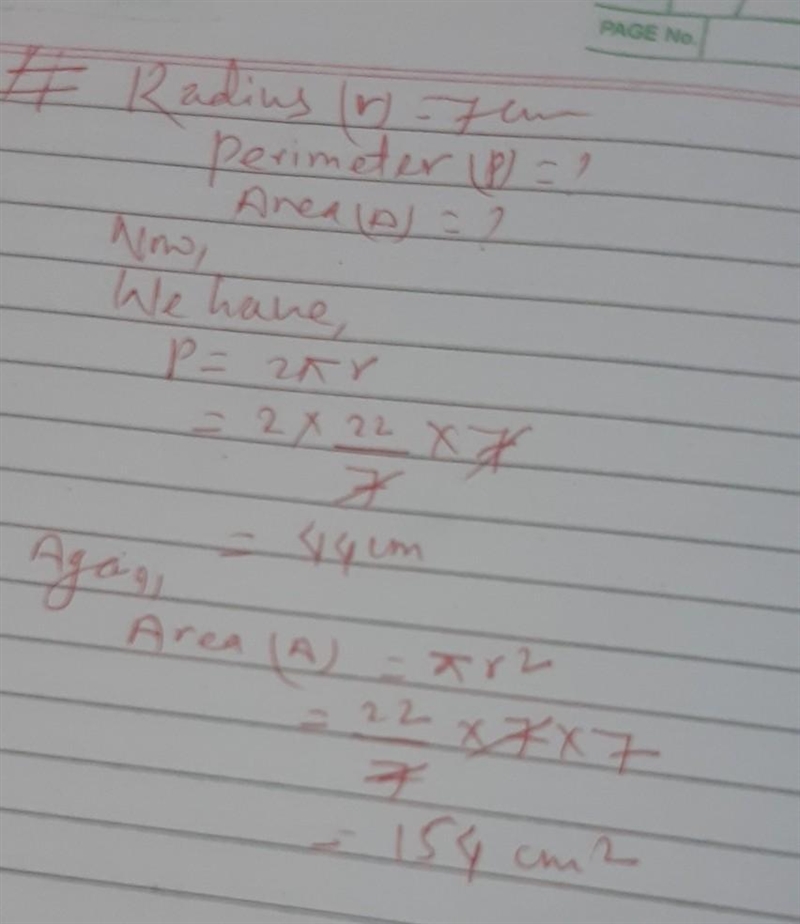 PAGE No.
# Radius (r) = 7cm
Perimeter (P) = ?
Area (A) = ?
Now,
We have,
P = 2πr
= 2 × 22/7 × 7
= 44cm
Again,
Area (A) = πr²
= 22/7 × 7 × 7
= 154 cm²